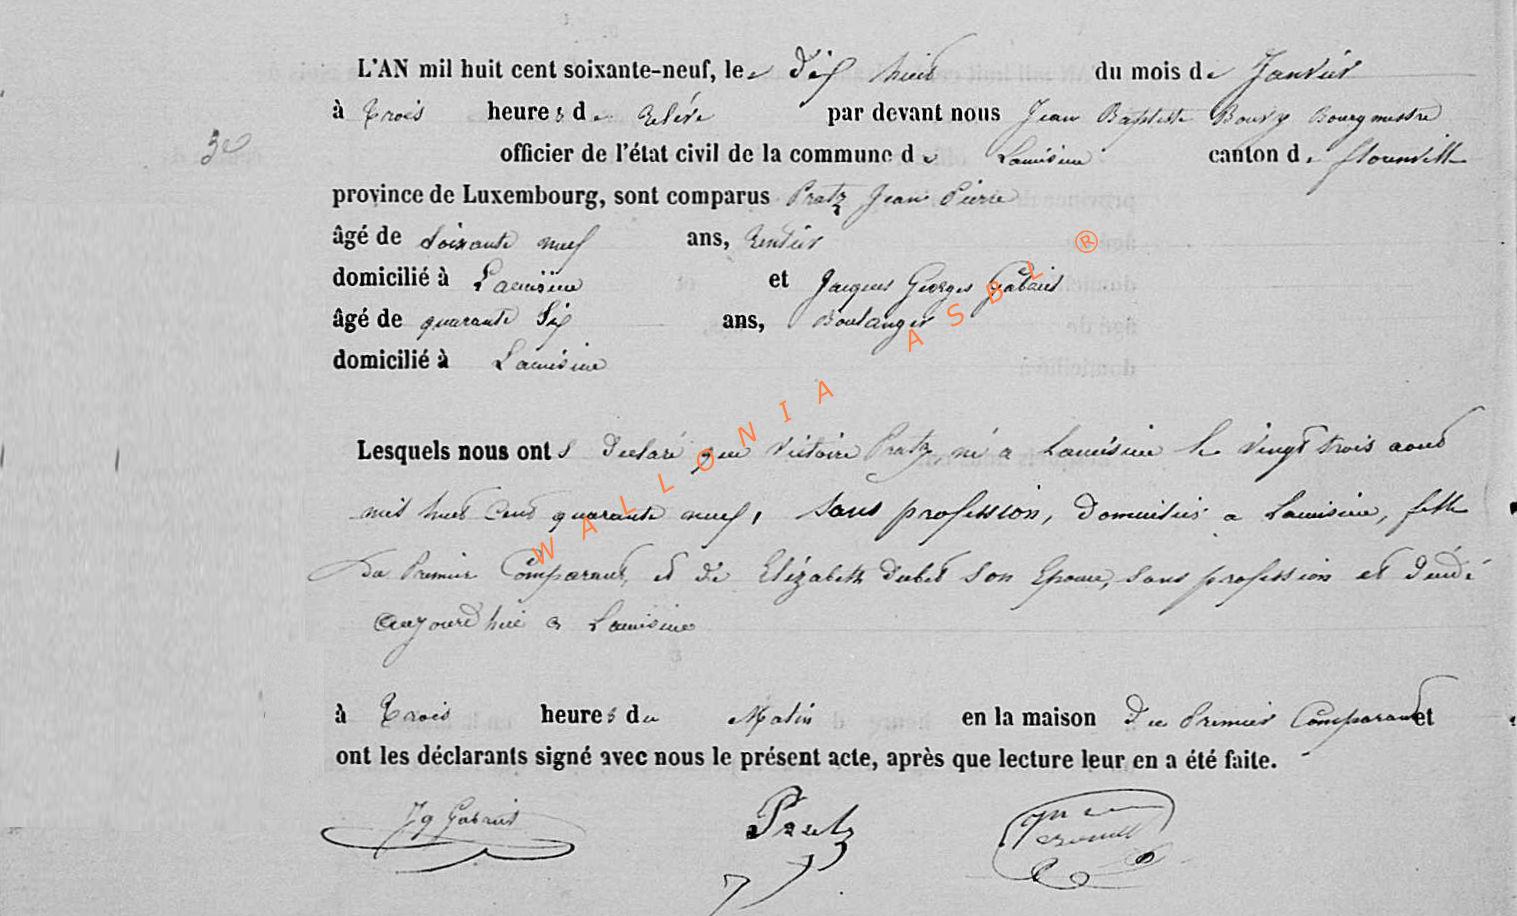 L'AN mil huit cent soixante-neuf, le dix huit du mois de Janvier
à trois heures de relevée par devant nous Jean Baptiste Bourgmestre
3e
officier de l'état civil de la commune de Lacuisine canton de florenville
province de Luxembourg, sont comparus Pratz Jean Pierre
âgé de Soixante neuf ans, Rentier
domicilié à Lacuisine et Jacques Georges Gabriel
âgé de quarante Six ans, Boulanger
domicilié à Lacuisine
Lesquels nous ont déclaré que Victoire Pratz, né a Lacuisine le vingt trois aout
mil huit cent quarante neuf, Sans profession, domicilié a Lacuisine, fille
du Premier Comparant, et de Elizabeth son Epouse, sans profession et décédé
aujourd'hui a Lacuisine
à trois heures du Matin en la maison du Premier Comparant et
ont les déclarants signé avec nous le présent acte, après que lecture leur en a été faite.
Jq Gabriel Pratz
WALLONIA ASBL ®